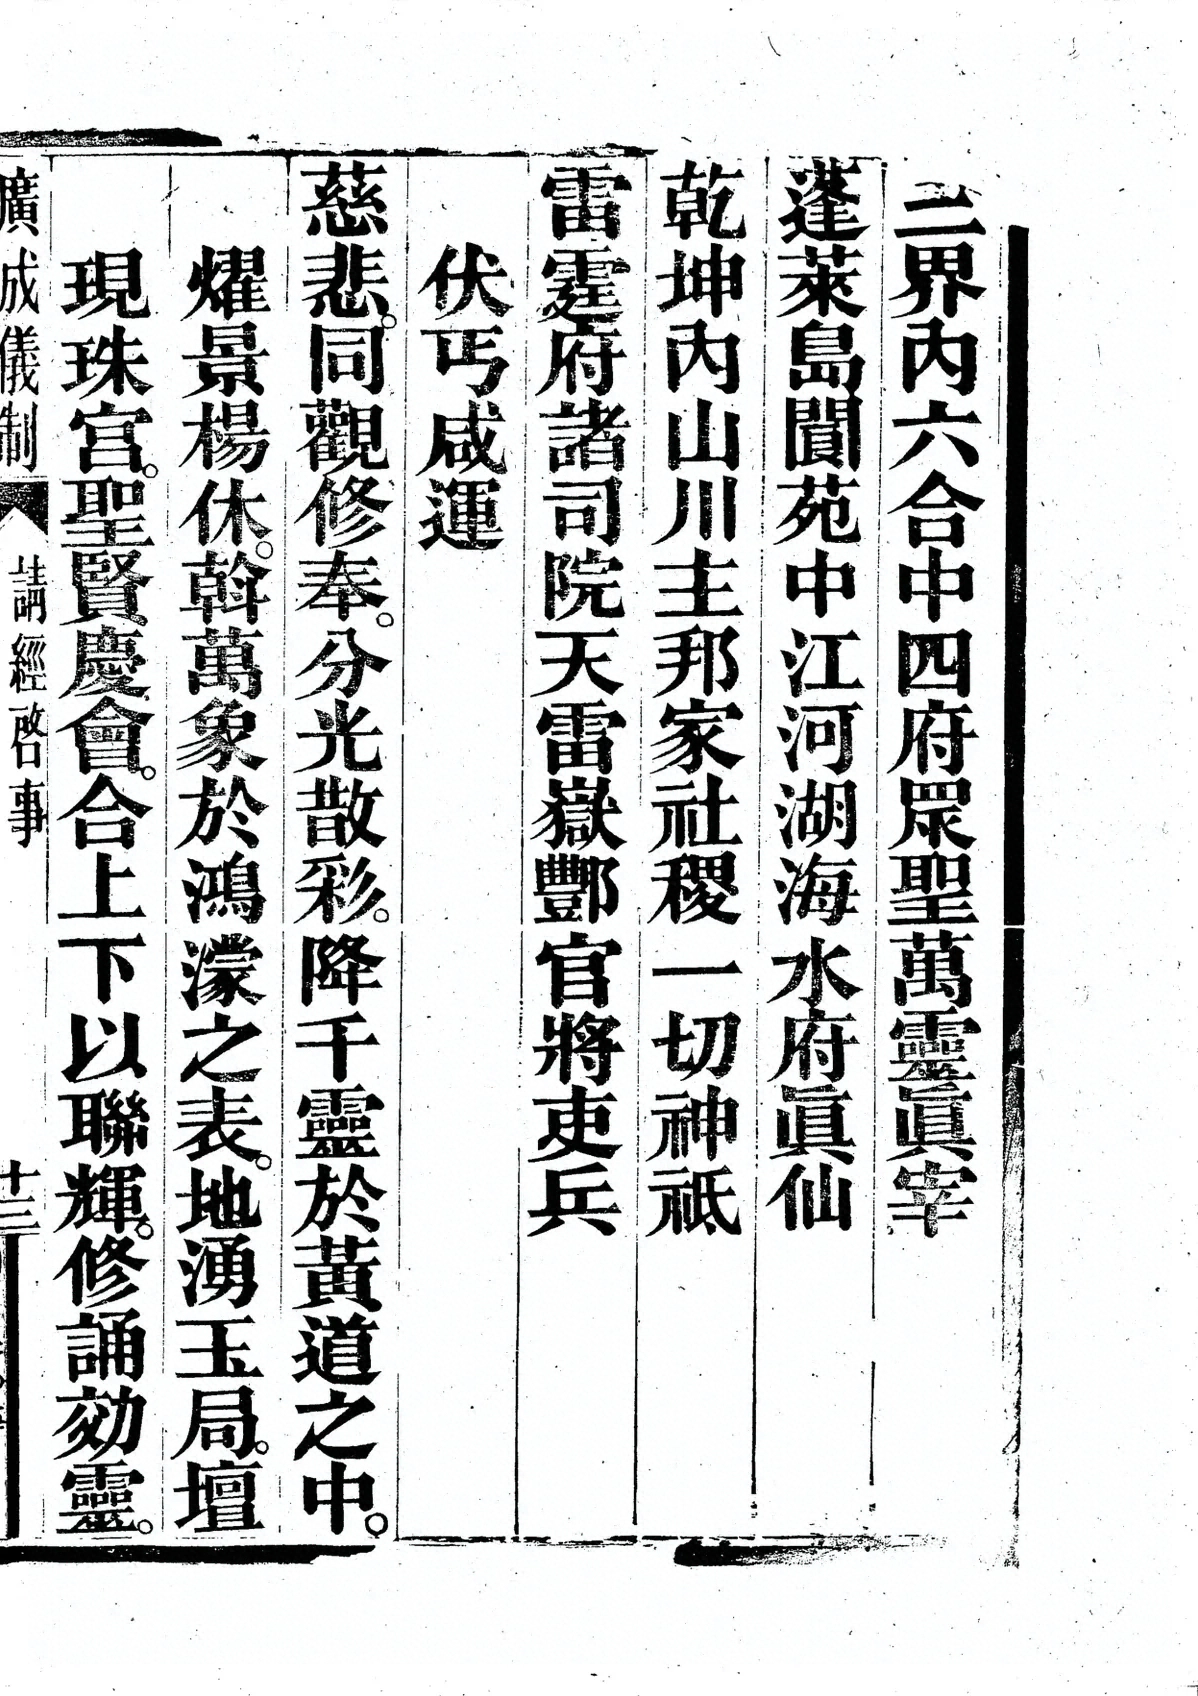 三界內六合中四府眾聖萬靈眞宰
蓬萊島閬苑中江河湖海水府眞仙
乾坤內山川主邦家社稷一切神祇
雷霆府諸司院天雷嶽酆官將吏兵
伏丐咸運
慈悲。同觀修奉。分光散彩。降千靈於黃道之中。
燿景楊休。斡萬象於鴻濛之表。地湧玉局。壇
現珠宮。聖賢慶會。合上下以聯輝。修誦効靈。
廣成儀制 請經啓事 十三